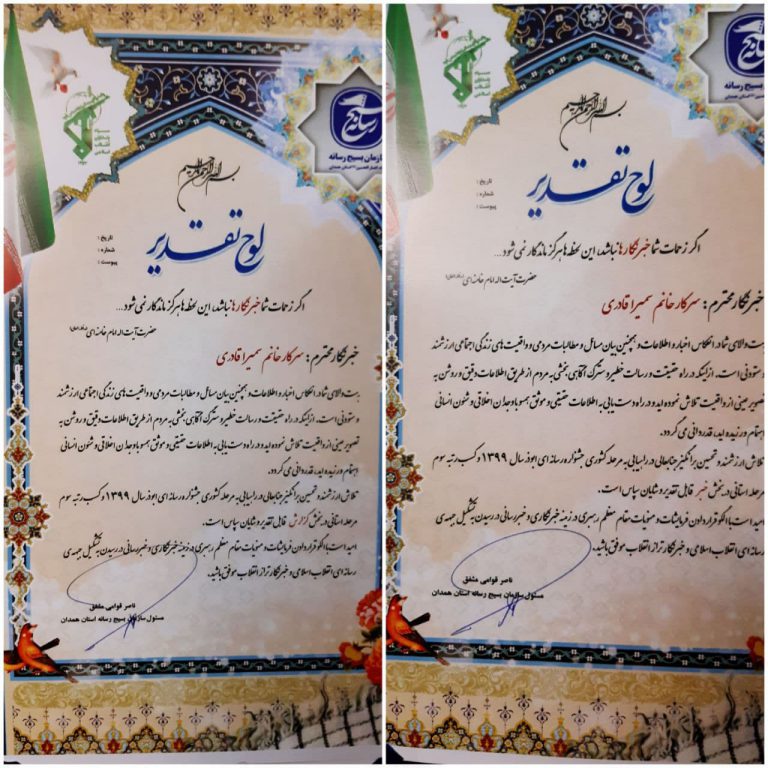 سازمان بسیج رسانه
بسم الله الرحمن الرحیم
لوح تقدیر
تاریخ :
شماره :
پیوست :
اگر زحمات شما خبرنگارها نباشد، این لحظه‌ها هرگز ماندگار نمی شود...
حضرت آیت اله امام خامنه ای
خبرنگار محترم : سرکار خانم سمیرا قادری
والای شما در انعکاس اخبار و اطلاعات و همچنین بیان مسائل و مطالبات مردمی و واقعیت های زندگی اجتماعی ارزشمند
و ستودنی است. از اینکه در راه حقیقت و رسالت خطیر و سترگ آگاهی بخشی به مردم از طریق اطلاعات دقیق و روشن به
تصویر عینی از واقعیت تلاش نموده اید و در راه دست یابی به اطلاعات حقیقی و موثق همسو با وجدان اخلاقی و شئون انسانی
اهتمام ورزیده اید، قدردانی می گردد.
تلاش ارزشمند و تحسین برانگیز جنابعالی در راهیابی به مرحله کشوری جشنواره رسانه ای ابوذر سال ۱۳۹۹ و کسب رتبه سوم
مرحله استانی در بخش گزارش قابل تقدیر و شایان سپاس است.
امید است با الگو قرار دادن فرمایشات و منویات مقام معظم رهبری در زمینه خبرنگاری و خبررسانی در رسیدن به تشکیل جبهه ی
رسانه ای انقلاب اسلامی و خبرنگار تراز انقلاب موفق باشید.
ناصر قوامی مشفق
مسئول سازمان بسیج رسانه استان همدان
بسیج رسانه
بسم الله الرحمن الرحیم
لوح تقدیر
تاریخ :
شماره :
پیوست :
اگر زحمات شما خبرنگارها نباشد، این لحظه‌ها هرگز ماندگار نمی شود...
حضرت آیت اله امام خامنه ای
خبرنگار محترم : سرکار خانم سمیرا قادری
والای شما در انعکاس اخبار و اطلاعات و همچنین بیان مسائل و مطالبات مردمی و واقعیت های زندگی اجتماعی ارزشمند
و ستودنی است. از اینکه در راه حقیقت و رسالت خطیر و سترگ آگاهی بخشی به مردم از طریق اطلاعات دقیق و روشن به
تصویر عینی از واقعیت تلاش نموده اید و در راه دست یابی به اطلاعات حقیقی و موثق همسو با وجدان اخلاقی و شئون انسانی
اهتمام ورزیده اید، قدردانی می گردد.
تلاش ارزشمند و تحسین برانگیز جنابعالی در راهیابی به مرحله کشوری جشنواره رسانه ای ابوذر سال ۱۳۹۹ و کسب رتبه سوم
مرحله استانی در بخش خبر قابل تقدیر و شایان سپاس است.
امید است با الگو قرار دادن فرمایشات و منویات مقام معظم رهبری در زمینه خبرنگاری و خبررسانی در رسیدن به تشکیل جبهه ی
رسانه ای انقلاب اسلامی و خبرنگار تراز انقلاب موفق باشید.
ناصر قوامی مشفق
مسئول سازمان بسیج رسانه استان همدان